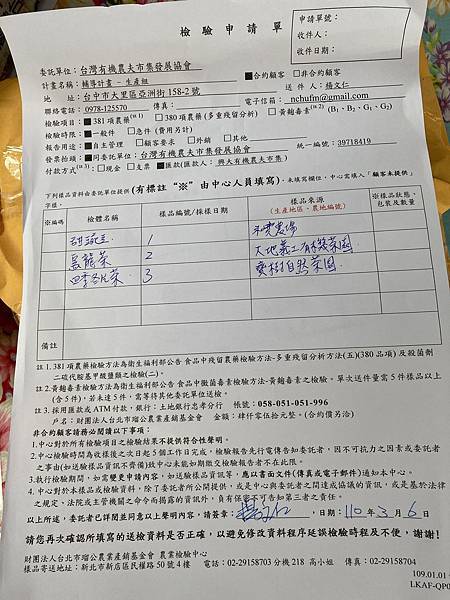 檢驗申請單
申請單號：
收件人：
收件日期：
委託單位：台灣有機農夫市集發展協會
計畫名稱：輔導計畫 - 生產組 ■合約顧客 □非合約顧客
地 址：台中市大里區亞洲街 158-2 號 送 件 人：楊文仁
聯絡電話：0978-125570 傳真： 電子信箱：nchufm@gmail.com
檢驗項目：■381 項農藥(註1) □380 項農藥(多重殘留分析) □黃麴毒素(註2) (B₁、B₂、G₁、G₂)
檢驗時限：■一般件 □急件 (費用另計)
報告用途：■自主管理 □顧客要求 □外銷 □其他
發票抬頭：■同委託單位：台灣有機農夫市集發展協會 統一編號：39718419
付款方式(註3)：□現金 □支票 ■匯款(匯款人：興大有機農夫市集)
下列樣品資料由委託單位提供(有標註“※”由中心人員填寫)，未填寫欄位，中心需填入「顧客未提供」
字樣。
※編碼 檢體名稱 樣品編號/採樣日期 樣品來源
(生產地區、農地編號) ※樣品狀態、
包裝及數量
甜豌豆 1
黑龍菜 2 大地義工有機菜園
四季 菜 3 樹自然菜園
備註
註 1. 381 項農藥檢驗方法為衛生福利部公告 食品中殘留農藥檢驗方法-多重殘留分析方法(五)(380 品項) 及殺菌劑
二硫代胺基甲酸鹽類之檢驗(二)。
註 2.黃麴毒素檢驗方法為衛生福利部公告 食品中黴菌毒素檢驗方法-黃麴毒素之檢驗。單次送件量需 5 件樣品以上
(含 5 件)，若未達 5 件，需等待其他委託單位送檢。
註 3.採用匯款或 ATM 付款，銀行：土地銀行忠孝分行 帳號：058-051-051-996
戶名：財團法人台北市瑠公農業產銷基金會 金額：肆仟零伍拾元整。(合約價另洽)
非合約顧客請務必閱讀以下事項：
1.中心對於所有檢驗項目之檢驗結果不提供符合性聲明。
2.中心檢驗時間為收樣後之次日起 5 個工作日完成，檢驗報告先行電傳告知委託者，因不可抗力之因素或委託者
之事由(如送驗樣品資訊不齊備)致中心未能如期繳交檢驗報告者不在此限。
3.執行檢驗期間，如需變更申請內容，如送驗樣品資訊等，應以書面文件(傳真或電子郵件)通知本中心。
4.中心對於本樣品或檢驗資料，除了委託者所公開提供，或是中心與委託者之間達成協議的資訊，或是基於法律
之規定、法院或主管機關之命令而揭露的資訊外，負有保密不可告知第三者之責任。
以上所述，委託者已詳閱並同意以上聲明內容，請簽章： ，日期：110 年 3 月 6 日
請您再次確認所填寫的送檢資料是否正確，以避免修改資料程序延誤檢驗時程及不便，謝謝!
財團法人台北市瑠公農業產銷基金會 農業檢驗中心
樣品寄送地址：新北市新店區民權路 50 號 4 樓 電話：02-29158703 分機 218 高小姐 傳真：02-29158704
109.01.01
LKAF-QP0